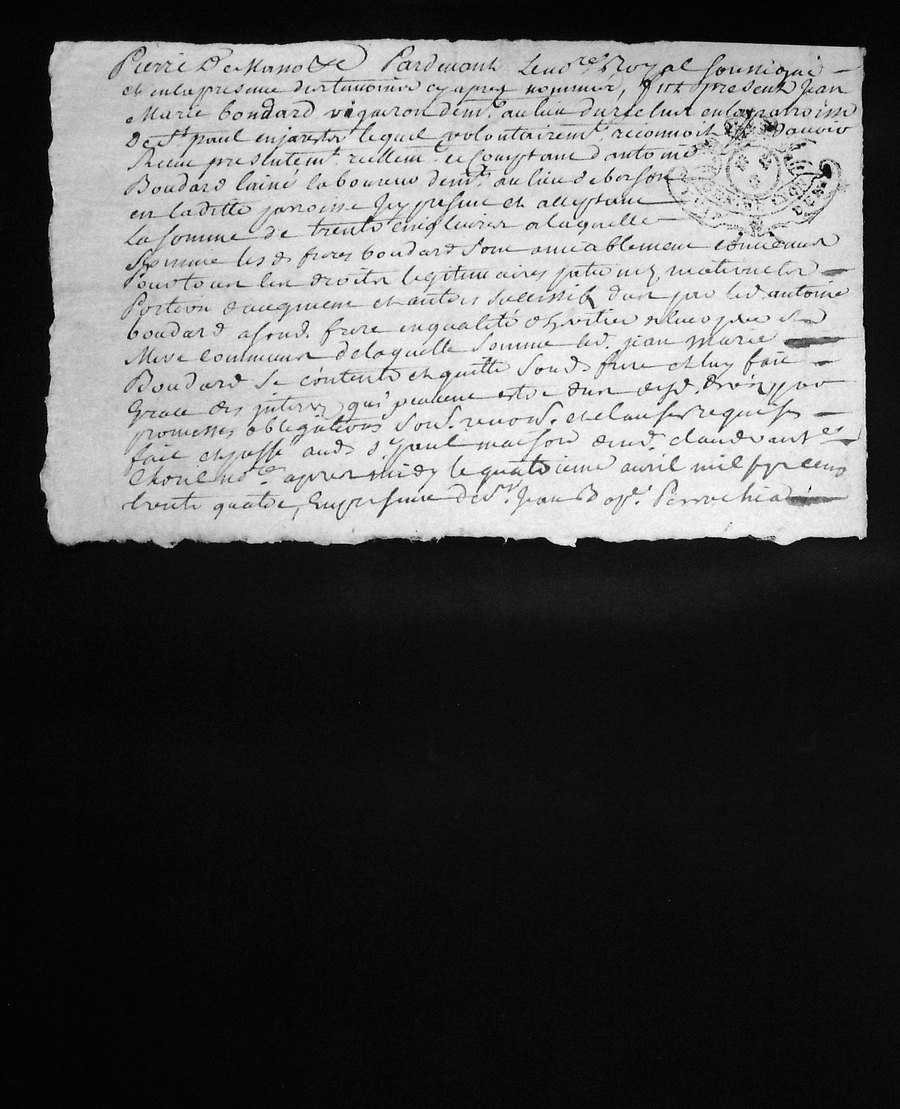 Pierre De Pardevant Le no.re Royal soussigné
et en la presence des temoins cy apres nommez, fut present Jean
Marie boudard vigneron dem.t au lieu du en la paroisse
De S.t paul en jarestz lequel volontairem.t reconnoit avoir
Receu presentem.t reellem.t et Comptant d'antoine
Boudard l'ainé laboureur dem.t au lieu de
en laditte paroisse Icy present et acceptant
la somme de trente cinq livres a laquelle
Somme lesd freres boudard sont amiablement convenus
Pour tous les droits legitimaires paternez maternelz
Portion d'augment et autres successifs dus par led. antoine
boudard a sond. frere en qualité d'heritier de leurs pere et
Mere communs de laquelle somme led. jean marie
Boudard se contente et quitte sond. frere et luy fait
Grace des interez qui peuvent estre dus
promesses obligations soub. renon. et clauses requises
fait et passé aud. S.t paul maison de claude
no.re apres midy le quatorieme avril mil sept cens
trente quatre, En presence de S.r Jean Bap.t